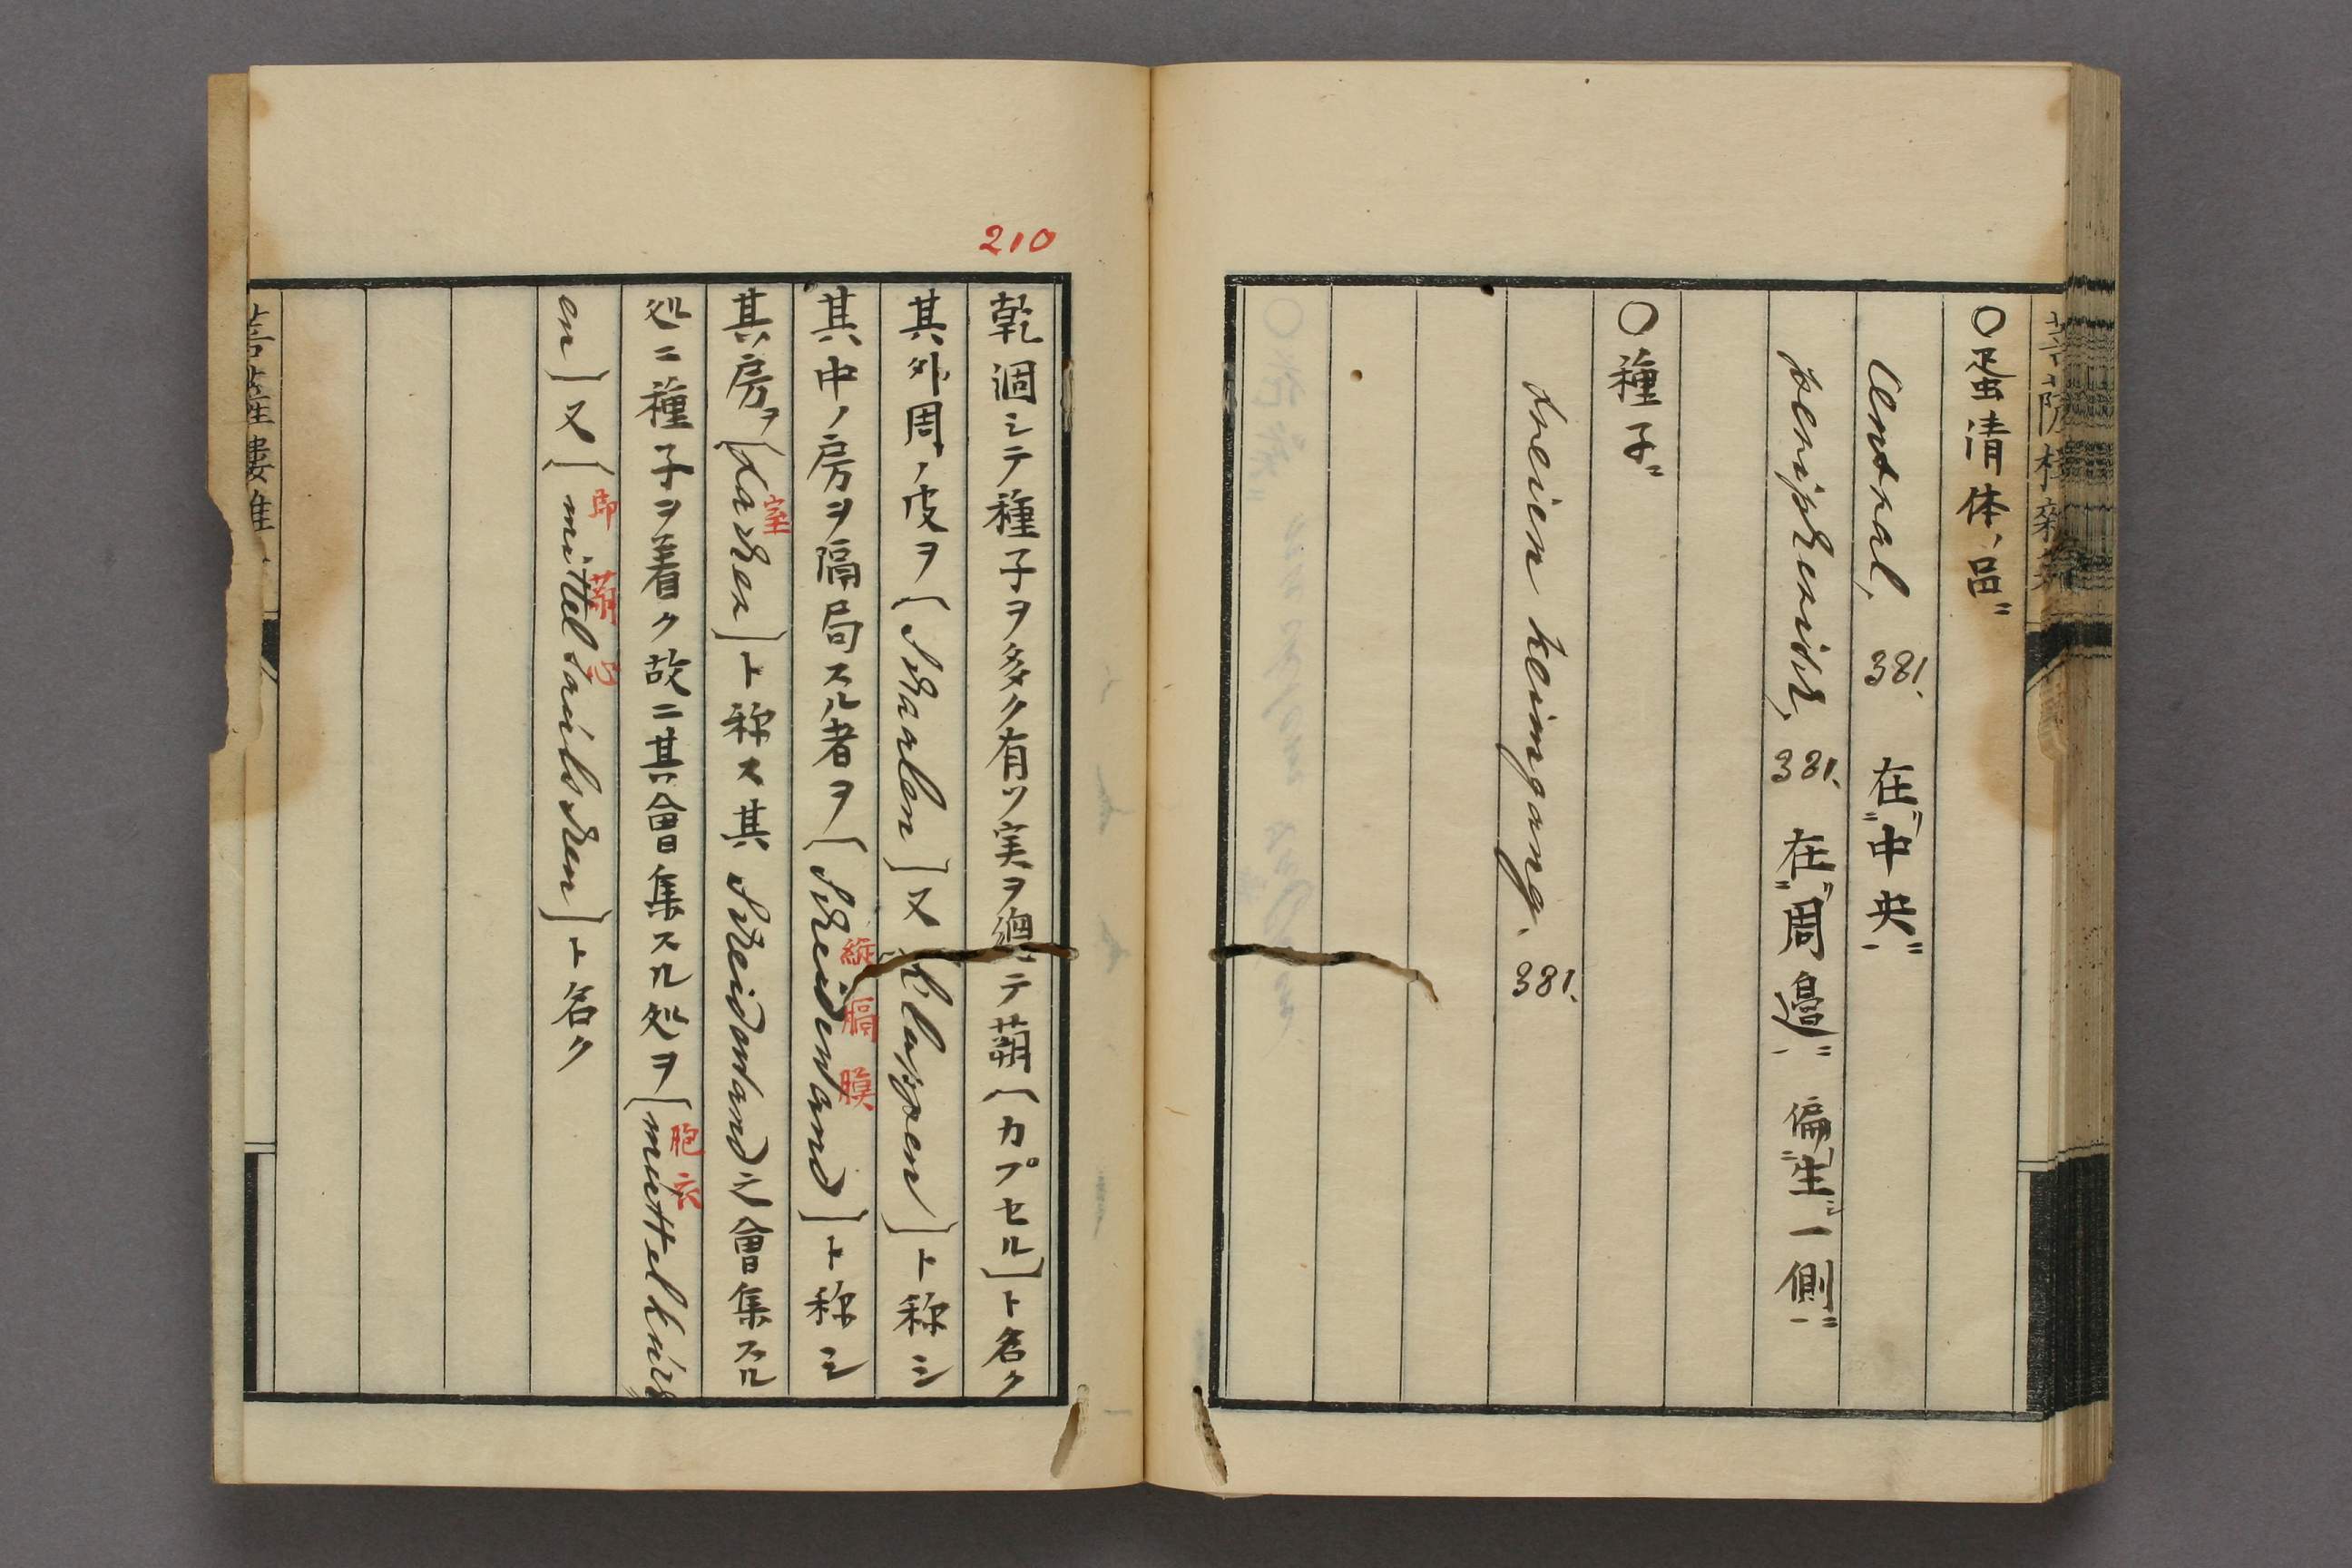 〇蛋清体ノ品ニ
Central, 381. 在中央
peripherisch, 381. 在周邉 偏生一側
〇種子ニ
dreien keimgang. 381.
210
乾涸シテ種子ヲ多ク有ツ実ヲ總テ蒴〔カプセル〕ト名ク
其外周ノ皮ヲ〔Schaalen〕又〔klappen〕ト称シ
其中ノ房ヲ隔局スル者ヲ〔Scheidewand〕ト称シ
縦膈膜
其房ヲ〔Facher〕ト称ス其 Scheidewand ノ會集スル
室
処ニ種子ヲ着ク故ニ其會集スル処ヲ〔muttelkuch
胞衣
en〕又〔mittelsäulchen〕ト名ク
即蒴心